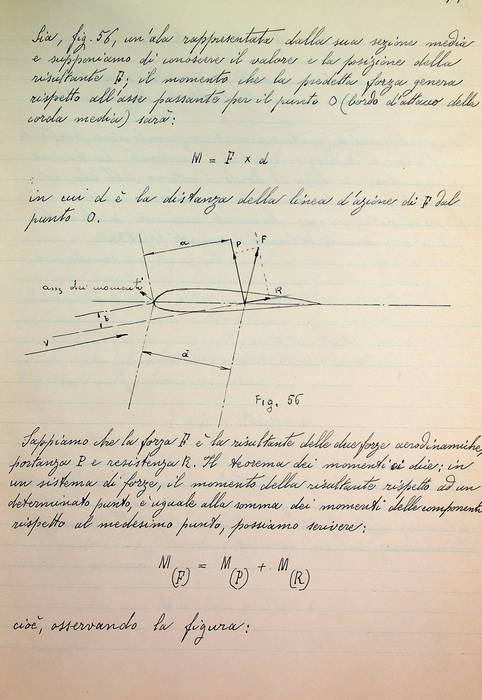 Sia, fig. 56, un'ala rappresentata dalla sua sezione media
e supponiamo di conoscere il valore e la posizione della
risultante F; il momento che la predetta forza genera
rispetto all'asse passante per il punto O (bordo d'attacco della
corda media) sarà:
M = F x d
in cui d è la distanza della linea d'azione di F dal
punto O.
a
P
F
asse dei momenti
R
b
V
d
Fig. 56
Sappiamo che la forza F è la risultante delle due forze aerodinamiche,
portanza P e resistenza R. Il teorema dei momenti ci dice: in
un sistema di forze, il momento della risultante rispetto ad un
determinato punto, è uguale alla somma dei momenti delle componenti
rispetto al medesimo punto, possiamo scrivere:
M(F) = M(P) + M(R)
cioè, osservando la figura: